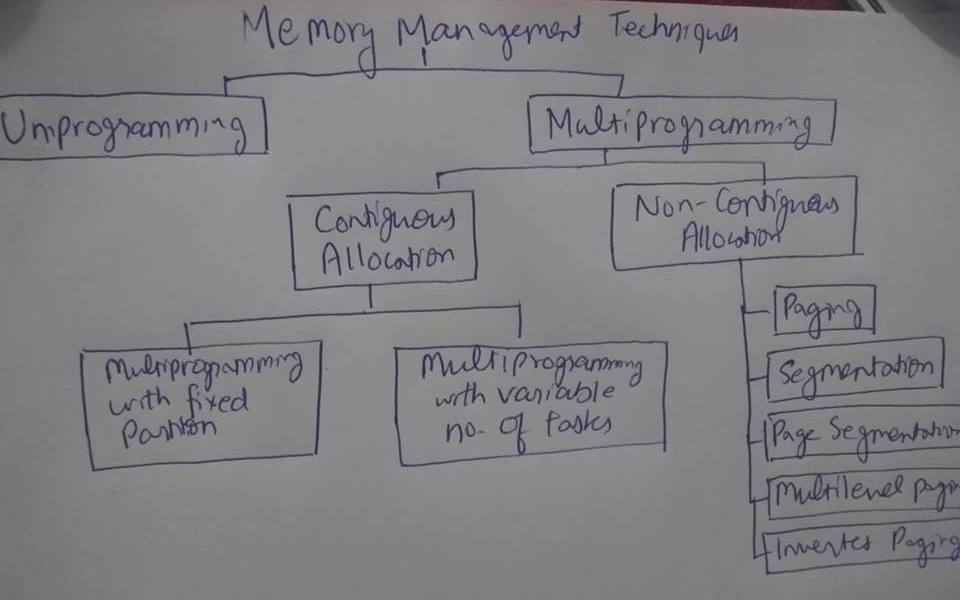 Memory Management Techniques
Uniprogramming
Multiprogramming
Contiguous
Allocation
Non-Contiguous
Allocation
Multiprogramming
with fixed
Partition
Multiprogramming
with variable
no. of tasks
Paging
Segmentation
Page Segmentation
Multilevel Paging
Invertes Paging